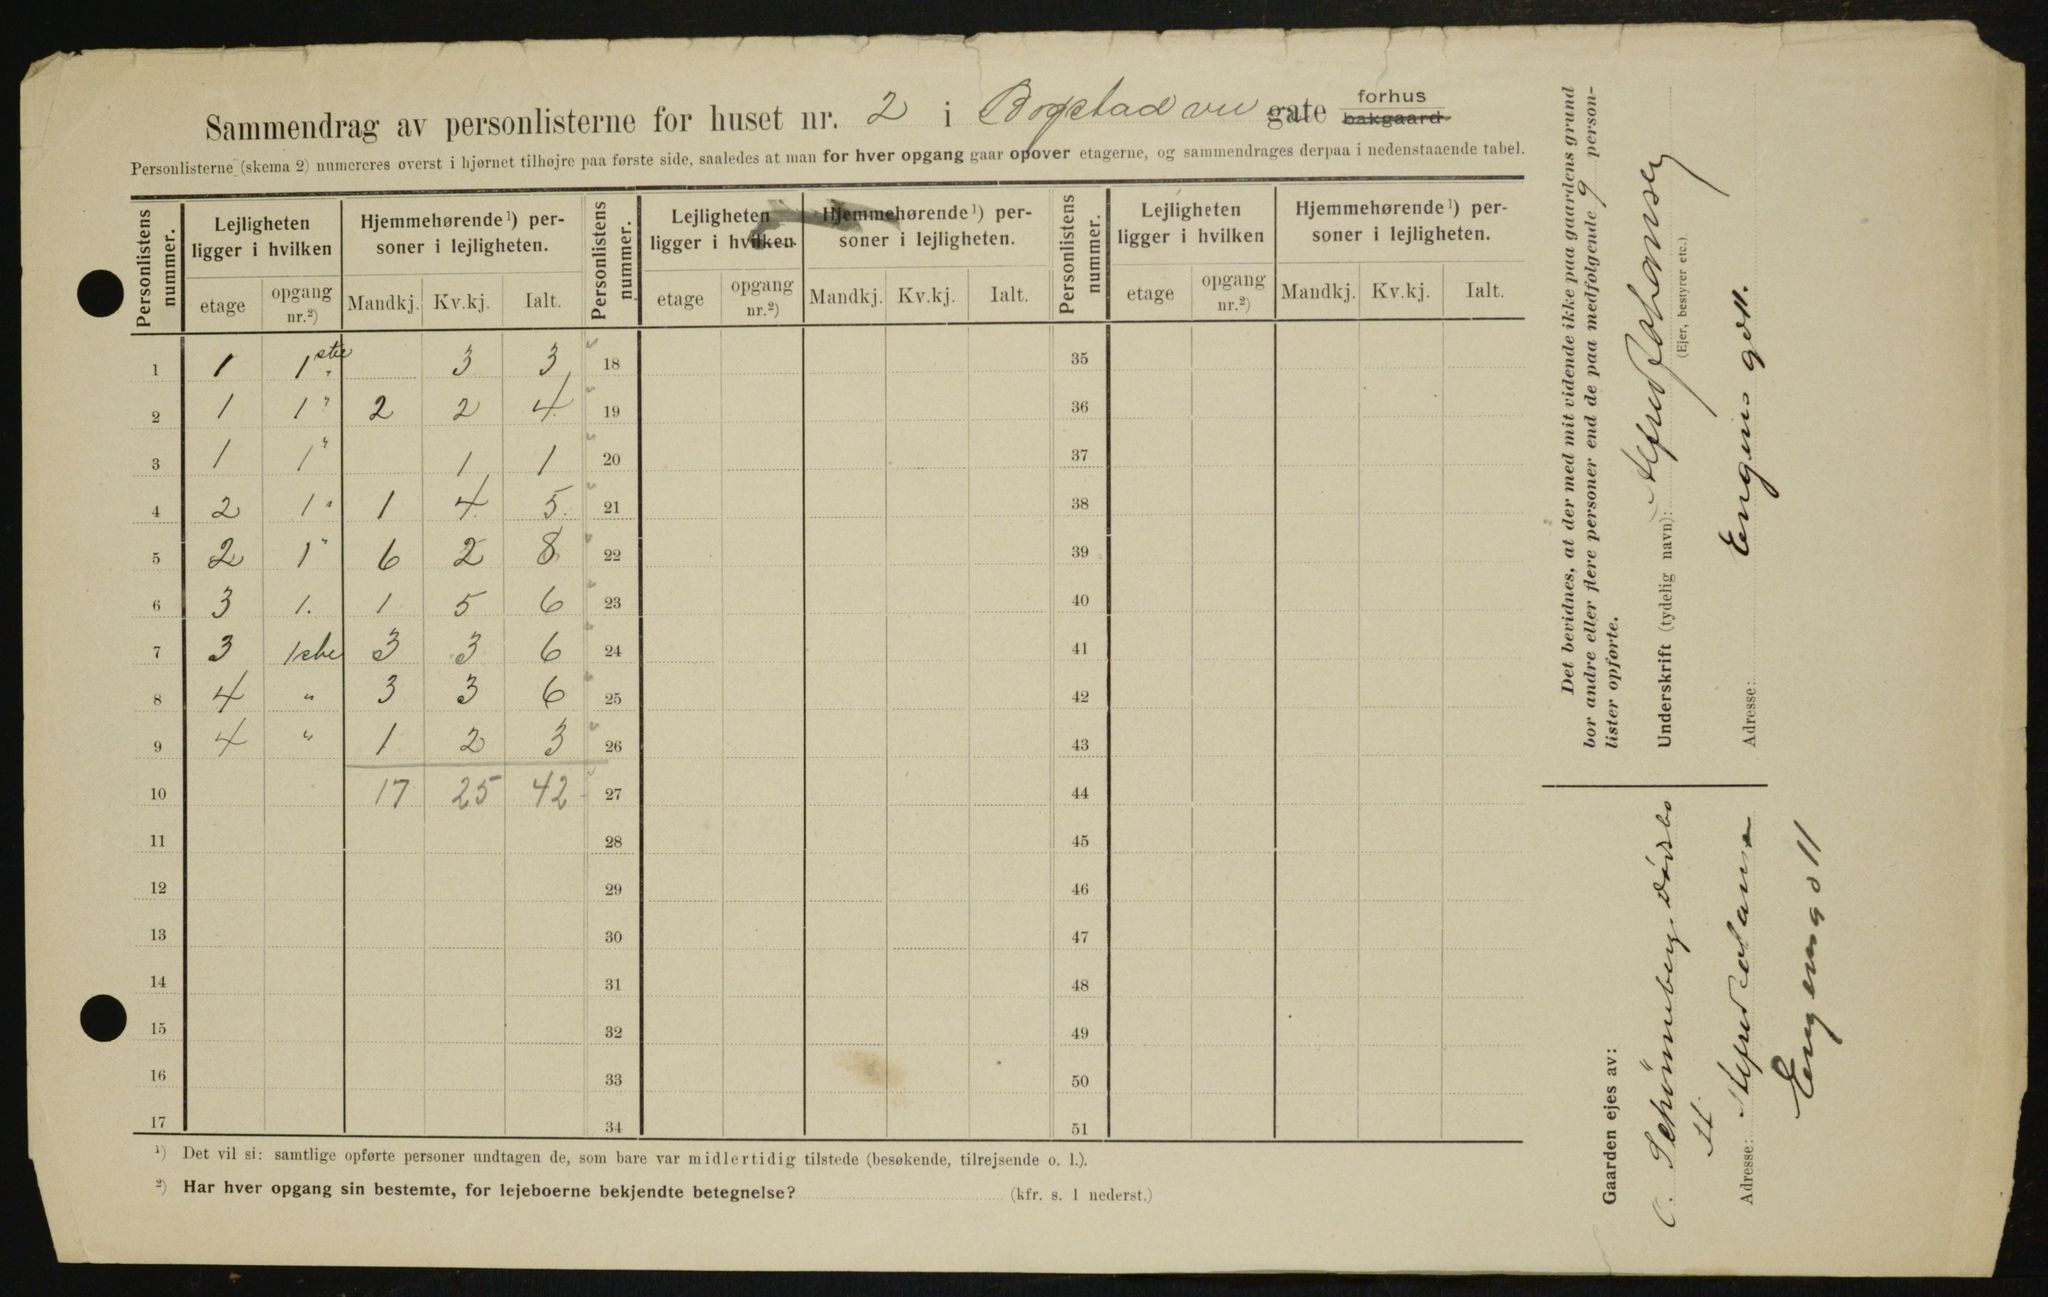 Sammendrag av personlisterne for huset nr. 2 i Bogstad vei gate forhus bakgaard
Personlisterne (skema 2) numereres øverst i hjørnet tilhøjre paa første side, saaledes at man for hver opgang gaar opover etagerne, og sammendrages derpaa i nedenstaaende tabel.
Personlistens nummer. Lejligheten ligger i hvilken Hjemmehørende ¹) personer i lejligheten. Personlistens nummer. Lejligheten ligger i hvilken Hjemmehørende ¹) personer i lejligheten. Personlistens nummer. Lejligheten ligger i hvilken Hjemmehørende ¹) personer i lejligheten.
etage opgang nr.²) Mandkj. Kv.kj. Ialt. etage opgang nr.²) Mandkj. Kv.kj. Ialt. etage opgang nr.²) Mandkj. Kv.kj. Ialt.
1 1 1ste 3 3 18 35
2 1 1 " 2 2 4 19 36
3 1 1 " 1 1 20 37
4 2 1 " 1 4 5 21 38
5 2 1 " 6 2 8 22 39
6 3 1. 1 5 6 23 40
7 3 1ste 3 3 6 24 41
8 4 " 3 3 6 25 42
9 4 " 1 2 3 26 43
10 17 25 42 27 44
11 28 45
12 29 46
13 30 47
14 31 48
15 32 49
16 33 50
17 34 51
¹) Det vil si: samtlige opførte personer undtagen de, som bare var midlertidig tilstede (besøkende, tilrejsende o. l.).
²) Har hver opgang sin bestemte, for lejeboerne bekjendte betegnelse? (kfr. s. 1 nederst.)
Det bevidnes, at der med mit vidende ikke paa gaardens grund
bor andre eller flere personer end de paa medfølgende 9 person-
lister opførte.
Underskrift (tydelig navn): Alfred Johansen
(Ejer, bestyrer etc.)
Adresse: Engens gd 11.
Gaarden ejes av:
C. Schönneberg
Adresse: Alfred Johansen
Engensg 11